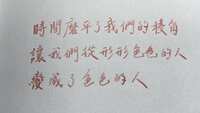 時間磨平了我們的稜角
讓我們從形形色色的人
變成了色色的人